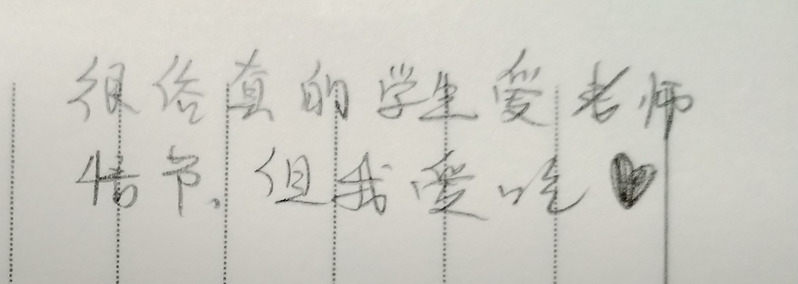 很俗真的学生爱老师
情节，但我爱吃♥